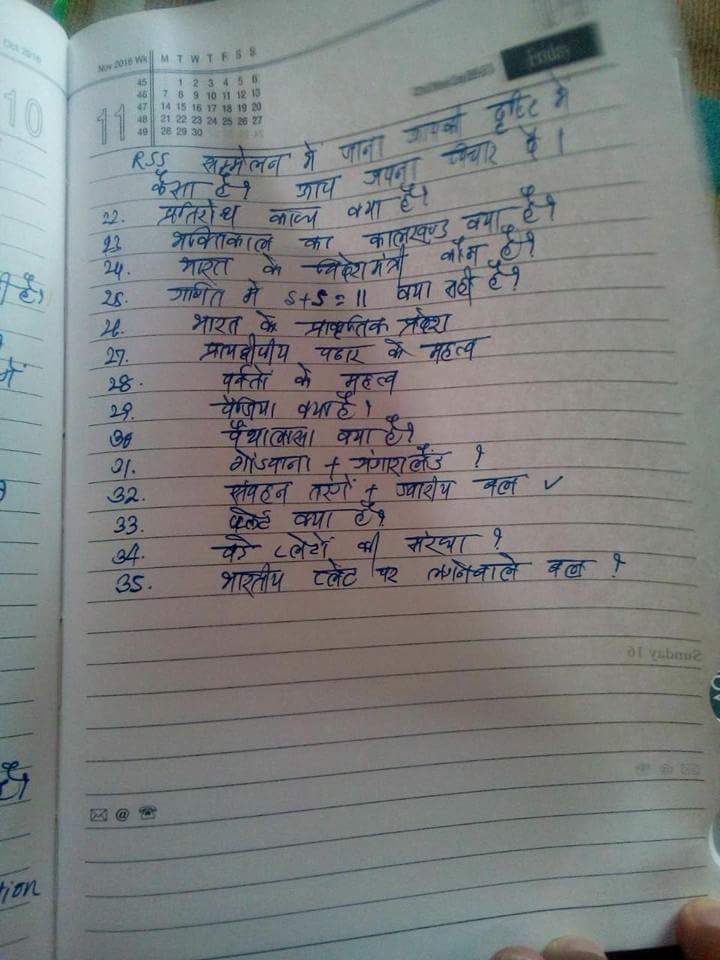 Oct 2016
10
Nov 2016 Wk M T W T F S S
45 1 2 3 4 5 6
46 7 8 9 10 11 12 13
47 14 15 16 17 18 19 20
48 21 22 23 24 25 26 27
49 28 29 30
11
Friday
RSS सम्मेलन में जाना आपकी दृष्टि में
कैसा है? आप अपना विचार दें।
22. प्रतिरोध काव्य क्या है?
23 भक्तिकाल का कालखण्ड क्या है?
24. भारत के विदेशमंत्री कौन है?
25. गणित में 5+5=11 क्या सही है?
26. भारत के प्राकृतिक प्रदेश
27. प्रायद्वीपीय पठार के महत्व
28. पर्वतों के महत्व
29. पैंजिया क्या है?
30 पैंथालासा क्या है?
31. गोंडवाना + अंगारालैंड ?
32. संवहन तरंगें + ज्वारीय बल ✓
33. प्लेट क्या है?
34. बड़े प्लेटों की संख्या ?
35. भारतीय प्लेट पर लगनेवाले बल ?
Sunday 16
है?
है?
tion